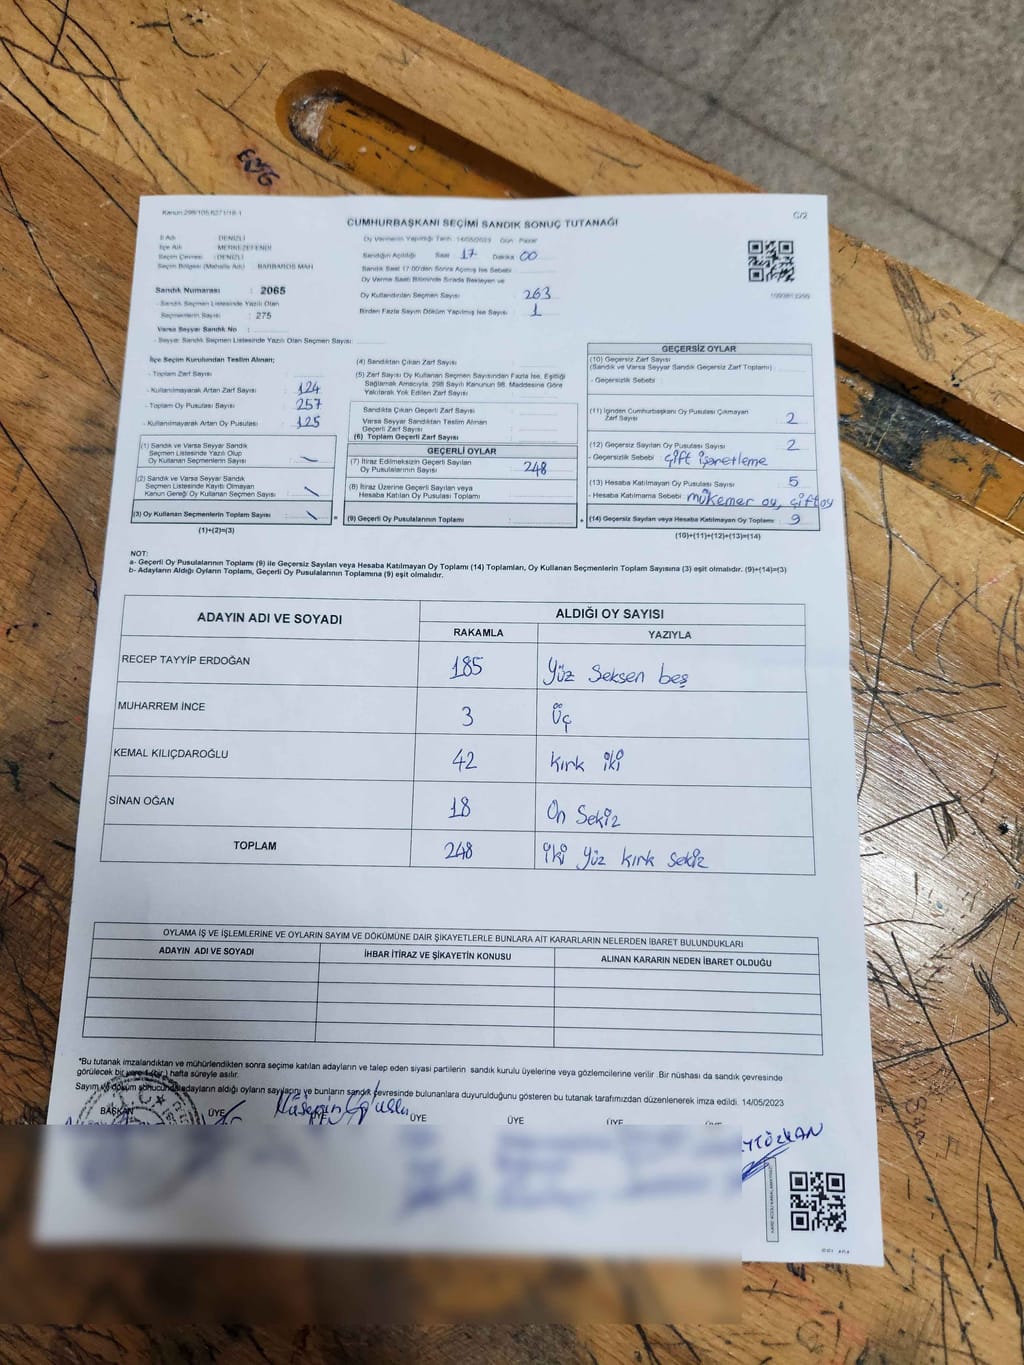 Kanun:298/105,6271/18-1
C/2
CUMHURBAŞKANI SEÇİMİ SANDIK SONUÇ TUTANAĞI
İl Adı : DENİZLİ
İlçe Adı : MERKEZEFENDİ
Seçim Çevresi : DENİZLİ
Seçim Bölgesi (Mahalle Adı) : BARBAROS MAH.
Sandık Numarası : 2065
- Sandık Seçmen Listesinde Yazılı Olan
Seçmenlerin Sayısı : 275
Varsa Seyyar Sandık No :
- Seyyar Sandık Seçmen Listesinde Yazılı Olan Seçmen Sayısı:
Oy Vermenin Yapıldığı Tarih : 14/05/2023 Gün : Pazar
Sandığın Açıldığı Saat 17 Dakika 00
Sandık Saat 17.00'den Sonra Açılmış İse Sebebi
Oy Verme Saati Bitiminde Sırada Bekleyen ve
Oy Kullandırılan Seçmen Sayısı : 263
Birden Fazla Sayım Döküm Yapılmış İse Sayısı : 1
İlçe Seçim Kurulundan Teslim Alınan;
- Toplam Zarf Sayısı :
- Kullanılmayarak Artan Zarf Sayısı : 124
- Toplam Oy Pusulası Sayısı : 257
- Kullanılmayarak Artan Oy Pusulası : 125
(1) Sandık ve Varsa Seyyar Sandık
Seçmen Listesinde Yazılı Olup
Oy Kullanan Seçmenlerin Sayısı :
(2) Sandık ve Varsa Seyyar Sandık
Seçmen Listesinde Kayıtlı Olmayan
Kanun Gereği Oy Kullanan Seçmen Sayısı :
(3) Oy Kullanan Seçmenlerin Toplam Sayısı :
(1)+(2)=(3)
(4) Sandıktan Çıkan Zarf Sayısı :
(5) Zarf Sayısı Oy Kullanan Seçmen Sayısından Fazla İse, Eşitliği
Sağlamak Amacıyla, 298 Sayılı Kanunun 98. Maddesine Göre
Yakılarak Yok Edilen Zarf Sayısı :
Sandıkta Çıkan Geçerli Zarf Sayısı :
Varsa Seyyar Sandıktan Teslim Alınan
Geçerli Zarf Sayısı :
(6) Toplam Geçerli Zarf Sayısı :
GEÇERLİ OYLAR
(7) İtiraz Edilmeksizin Geçerli Sayılan
Oy Pusulalarının Sayısı : 248
(8) İtiraz Üzerine Geçerli Sayılan veya
Hesaba Katılan Oy Pusulası Toplamı :
(9) Geçerli Oy Pusulalarının Toplamı :
GEÇERSİZ OYLAR
(10) Geçersiz Zarf Sayısı
(Sandık ve Varsa Seyyar Sandık Geçersiz Zarf Toplamı) :
- Geçersizlik Sebebi :
(11) İçinden Cumhurbaşkanı Oy Pusulası Çıkmayan
Zarf Sayısı : 2
(12) Geçersiz Sayılan Oy Pusulası Sayısı : 2
- Geçersizlik Sebebi : çift işaretleme
(13) Hesaba Katılmayan Oy Pusulası Sayısı : 5
- Hesaba Katılmama Sebebi : mükemer oy, çift oy
(14) Geçersiz Sayılan veya Hesaba Katılmayan Oy Toplamı : 9
(10)+(11)+(12)+(13)=(14)
NOT:
a- Geçerli Oy Pusulalarının Toplamı (9) ile Geçersiz Sayılan veya Hesaba Katılmayan Oy Toplamı (14) Toplamları, Oy Kullanan Seçmenlerin Toplam Sayısına (3) eşit olmalıdır. (9)+(14)=(3)
b- Adayların Aldığı Oyların Toplamı, Geçerli Oy Pusulalarının Toplamına (9) eşit olmalıdır.
ADAYIN ADI VE SOYADI ALDIĞI OY SAYISI
RAKAMLA YAZIYLA
RECEP TAYYİP ERDOĞAN 185 Yüz Seksen beş
MUHARREM İNCE 3 Üç
KEMAL KILIÇDAROĞLU 42 Kırk iki
SİNAN OĞAN 18 On Sekiz
TOPLAM 248 iki yüz kırk sekiz
OYLAMA İŞ VE İŞLEMLERİNE VE OYLARIN SAYIM VE DÖKÜMÜNE DAİR ŞİKAYETLERLE BUNLARA AİT KARARLARIN NELERDEN İBARET BULUNDUKLARI
ADAYIN ADI VE SOYADI İHBAR İTİRAZ VE ŞİKAYETİN KONUSU ALINAN KARARIN NEDEN İBARET OLDUĞU
*Bu tutanak imzalandıktan ve mühürlendikten sonra seçime katılan adayların ve talep eden siyasi partilerin sandık kurulu üyelerine veya gözlemcilerine verilir .Bir nüshası da sandık çevresinde
görülecek bir yere 1 (bir) hafta süreyle asılır.
Sayım ve döküm sonucunda adayların aldığı oyların sayılarını ve bunların sandık çevresinde bulunanlara duyurulduğunu gösteren bu tutanak tarafımızdan düzenlenerek imza edildi. 14/05/2023
BAŞKAN ÜYE ÜYE ÜYE ÜYE ÜYE ÜYE